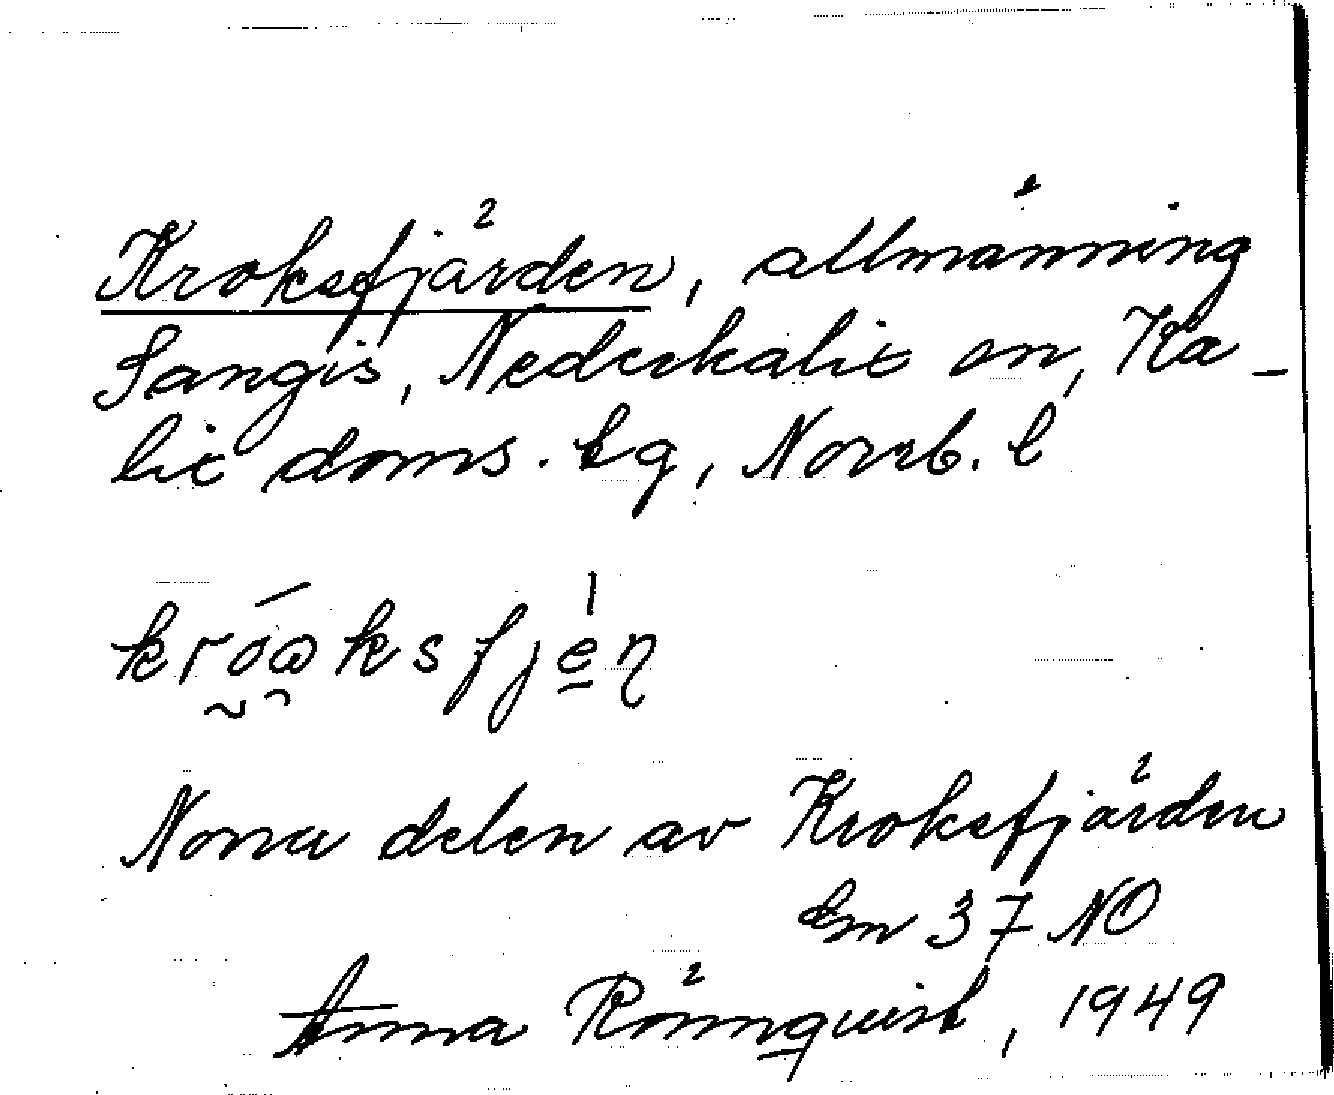 Kroksfjärden, allmänning
Sangis, Nederkalix sn, Ka-
lix doms. tg, Norrb. l
króαksfjéη
Norra delen av Kroksfjärden
Em 37 NO
Anna Rönnquist, 1949